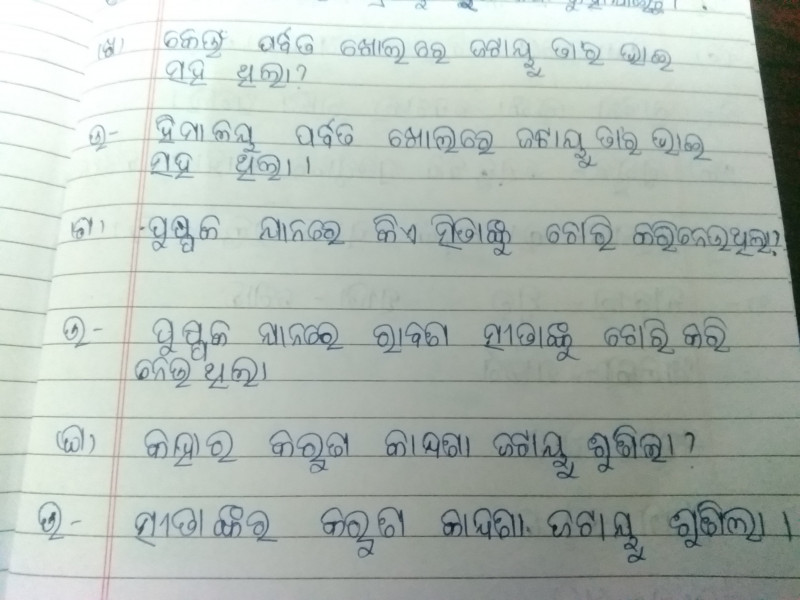 (ଖ) କେଉଁ ପର୍ବତ ଖୋଲରେ ଜଟାୟୁ ତାର ଭାଇ
ସହ ଥିଲା?
ଉ- ହିମାଳୟ ପର୍ବତ ଖୋଲରେ ଜଟାୟୁ ତାର ଭାଇ
ସହ ଥିଲା।
(ଗ) ପୁଷ୍ପକ ଯାନରେ କିଏ ସିତାଙ୍କୁ ଚୋରି କରିନେଉଥିଲା?
ଉ- ପୁଷ୍ପକ ଯାନରେ ରାବଣ ସୀତାଙ୍କୁ ଚୋରି କରି
ନେଉଥିଲା
(ଘ) କାହାର କରୁଣ କାନ୍ଦଣା ଜଟାୟୁ ଶୁଣିଲା?
ଉ- ସୀତାଙ୍କର କରୁଣ କାନ୍ଦଣା ଜଟାୟୁ ଶୁଣିଲା।